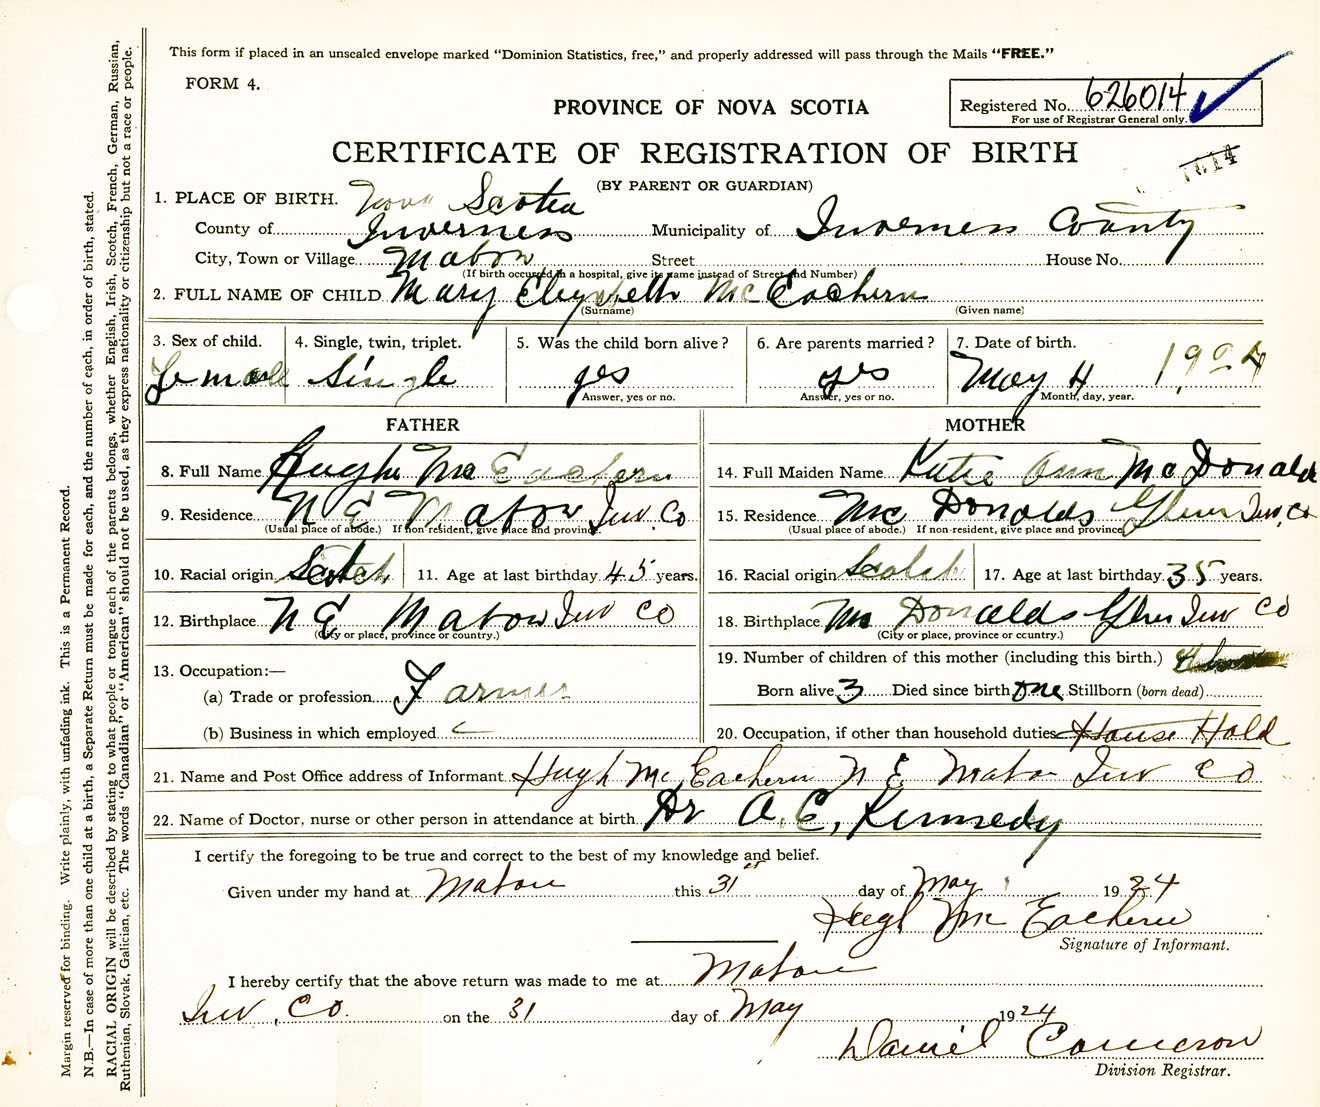 This form if placed in an unsealed envelope marked "Dominion Statistics, free," and properly addressed will pass through the Mails "FREE."
FORM 4.
Registered No. 626014
For use of Registrar General only.
PROVINCE OF NOVA SCOTIA
CERTIFICATE OF REGISTRATION OF BIRTH
1614
(BY PARENT OR GUARDIAN)
1. PLACE OF BIRTH. Nova Scotia
County of Inverness Municipality of Inverness County
City, Town or Village Mabou Street House No.
(If birth occurred in a hospital, give its name instead of Street and Number)
2. FULL NAME OF CHILD Mary Elizabeth McEachern
(Surname) (Given name)
3. Sex of child. 4. Single, twin, triplet. 5. Was the child born alive? 6. Are parents married? 7. Date of birth.
Female Single yes yes May 4 1924
Answer, yes or no. Answer, yes or no. Month, day, year.
FATHER
8. Full Name Hugh McEachern
9. Residence N E Mabou Inv. Co
(Usual place of abode.) If non-resident, give place and province.
10. Racial origin Scotch 11. Age at last birthday 45 years.
12. Birthplace N E Mabou Inv Co
(City or place, province or country.)
13. Occupation:—
(a) Trade or profession Farmer
(b) Business in which employed
MOTHER
14. Full Maiden Name Katie Ann McDonald
15. Residence Mc Donalds Glen Inv, Co
(Usual place of abode.) If non-resident, give place and province.
16. Racial origin Scotch 17. Age at last birthday 35 years.
18. Birthplace Mc Donalds Glen Inv Co
(City or place, province or country.)
19. Number of children of this mother (including this birth.)
Born alive 3 Died since birth one Stillborn (born dead)
20. Occupation, if other than household duties House Hold
21. Name and Post Office address of Informant Hugh McEachern N E Mabou Inv Co
22. Name of Doctor, nurse or other person in attendance at birth Dr A. E, Kennedy
I certify the foregoing to be true and correct to the best of my knowledge and belief.
Given under my hand at Mabou this 31st day of May 1924
Hugh McEachern
Signature of Informant.
I hereby certify that the above return was made to me at Mabou
Inv, Co. on the 31 day of May 1924
Daniel Cameron
Division Registrar.
Margin reserved for binding. Write plainly, with unfading ink. This is a Permanent Record.
N.B.—In case of more than one child at a birth, a Separate Return must be made for each, and the number of each, in order of birth, stated.
RACIAL ORIGIN will be described by stating to what people or tongue each of the parents belongs, whether English, Irish, Scotch, French, German, Russian,
Ruthenian, Slovak, Galician, etc. The words "Canadian" or "American" should not be used, as they express nationality or citizenship but not a race or people.